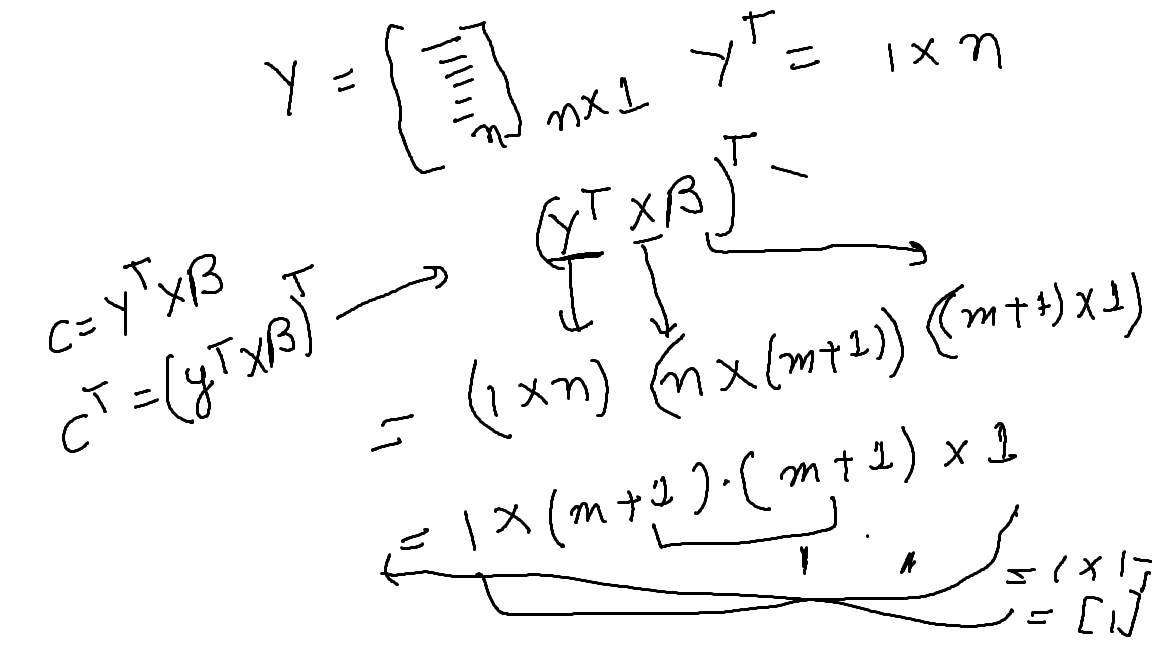 Y = [ n ] n×1 Y^T = 1×n
(y^T Xβ)^T
C = Y^T Xβ
C^T = (y^T Xβ)^T
= (1×n) (n×(m+1)) ((m+1)×1)
= 1×(m+1)·(m+1)×1
= 1×1
= [1]